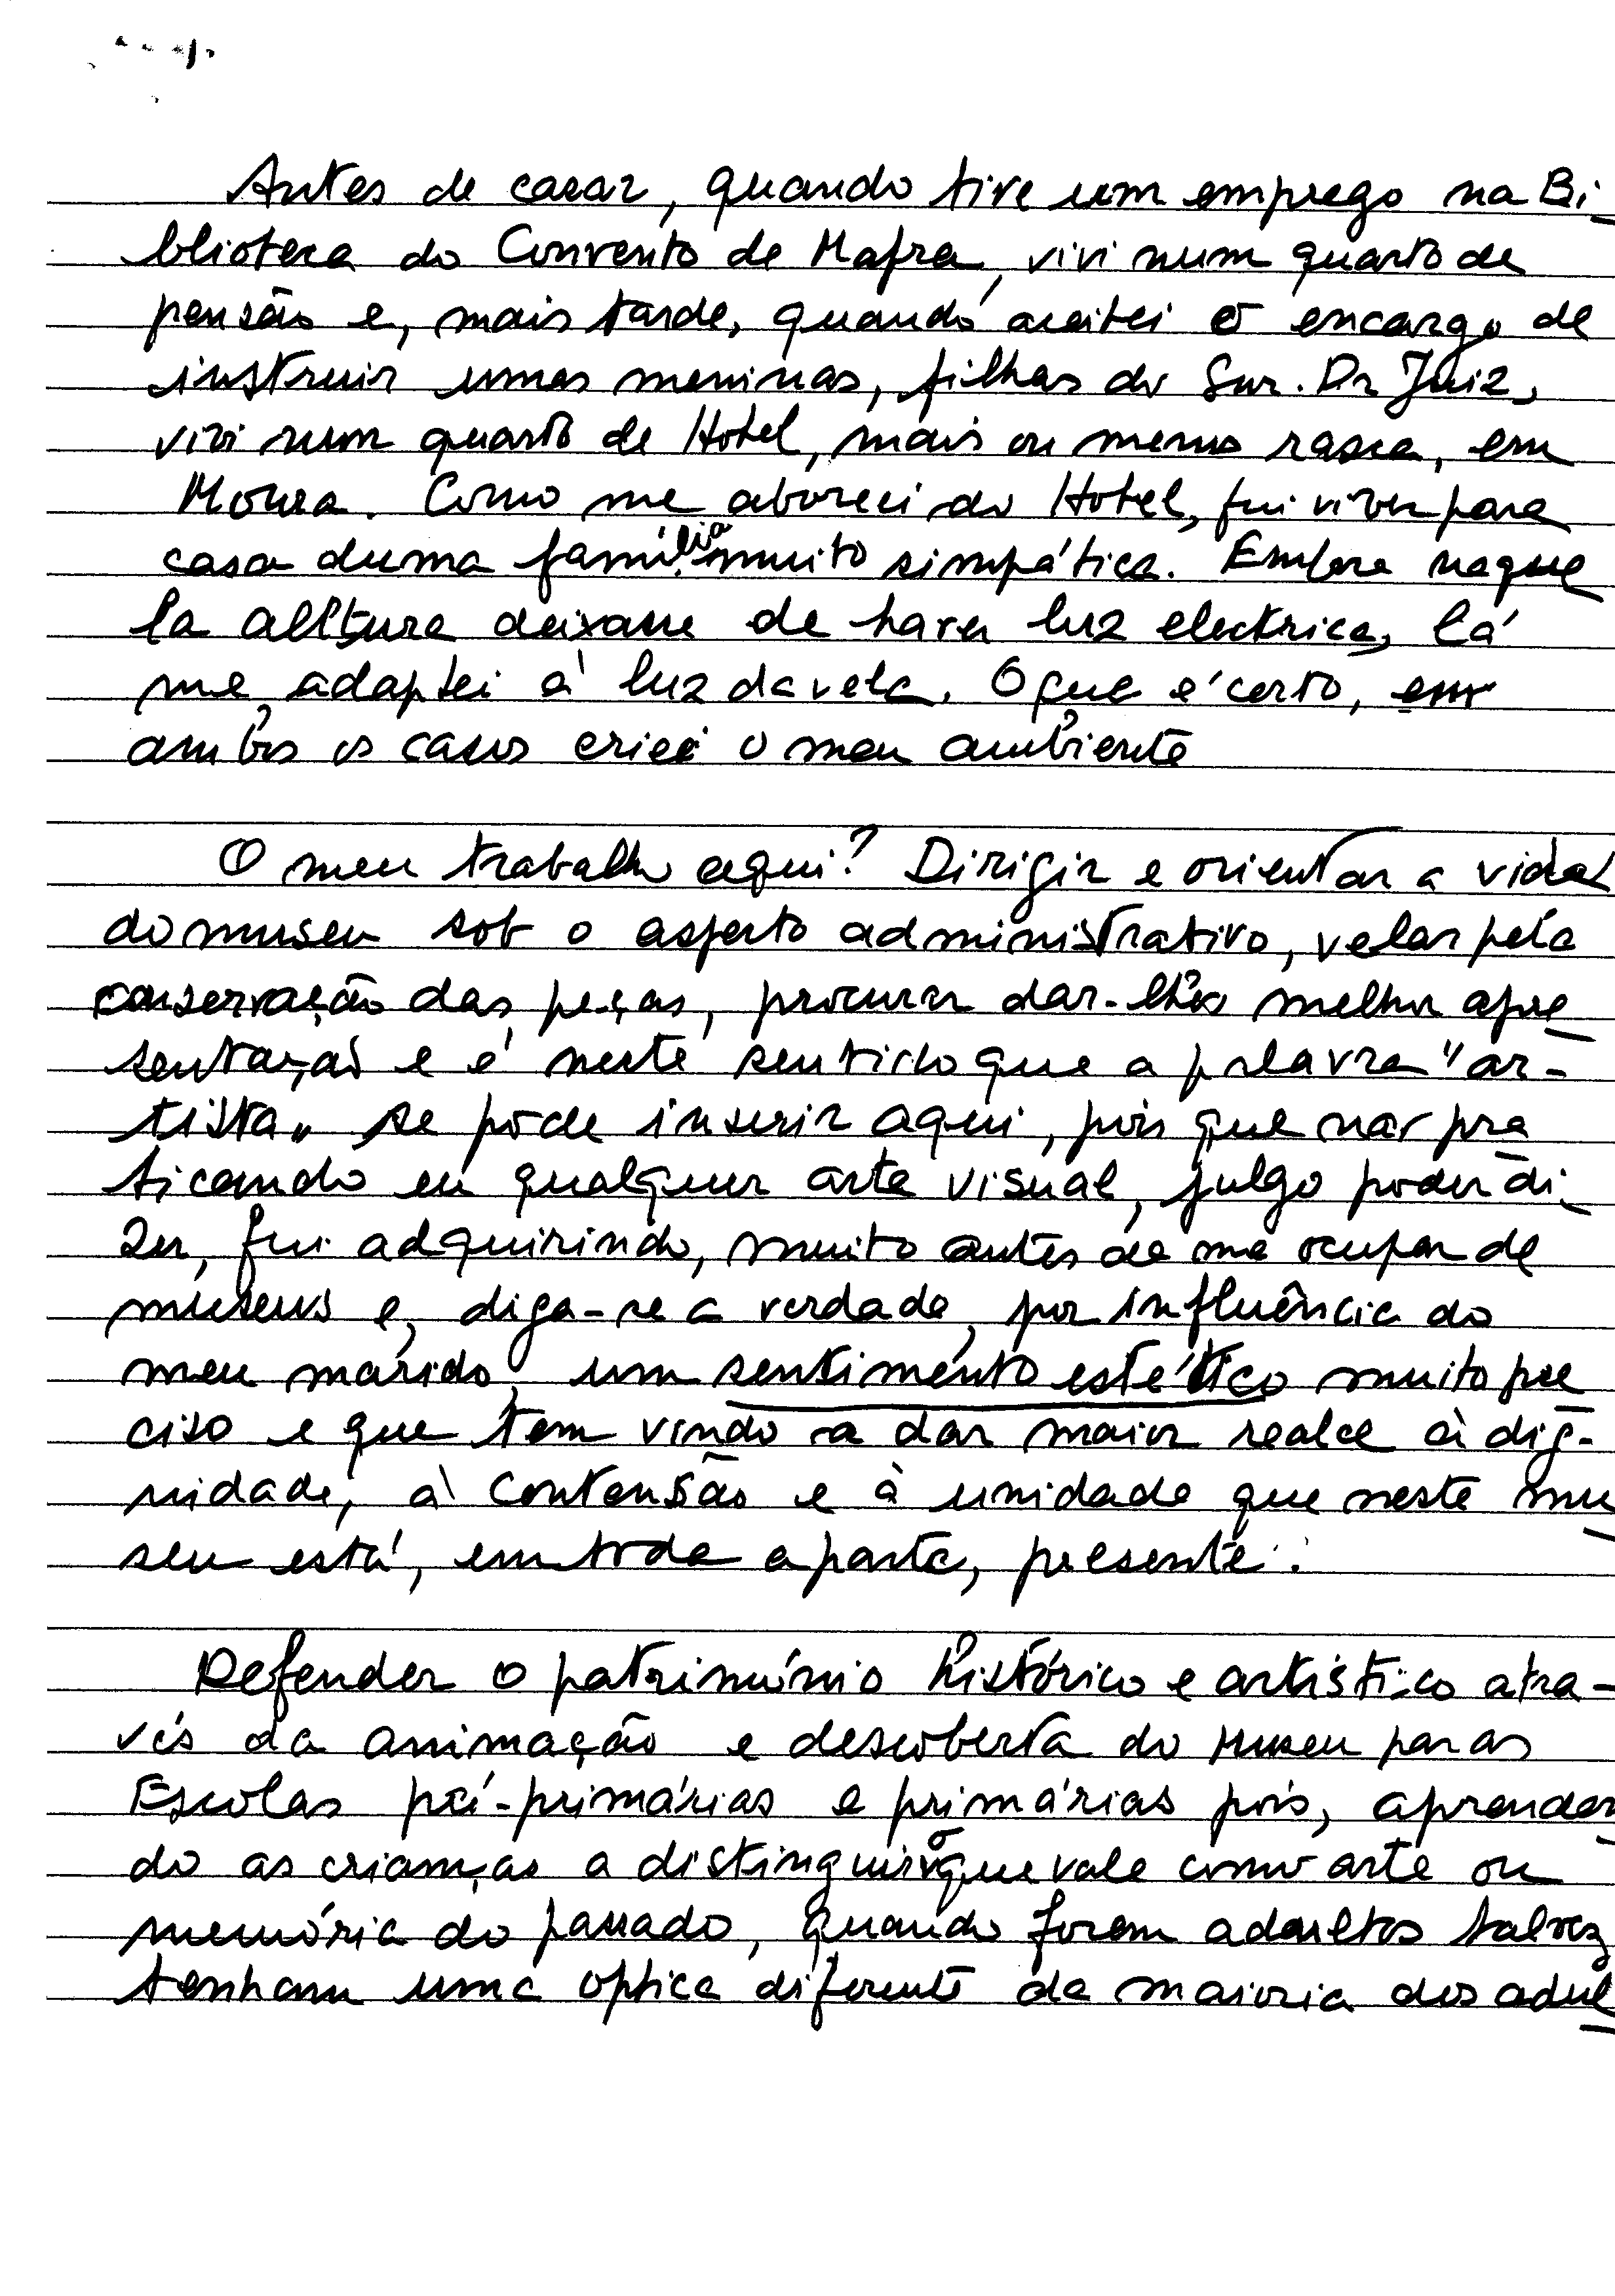 Antes de casar, quando tive um emprego na Bi-
blioteca do Convento de Mafra, vivi num quarto de
pensão e, mais tarde, quando aceitei o encargo de
instruir umas meninas, filhas do Snr. Dr Juiz,
vivi num quarto de Hotel, mais ou menos rasca, em
Moura. Como me aborreci do Hotel, fui viver para
casa duma família muito simpática. Embora naque
la altura deixasse de haver luz electrica, lá
me adaptei à luz da vela. O que é certo, em
ambos os casos criei o meu ambiente
O meu trabalho aqui? Dirigir e orientar a vida
do museu sob o aspecto administrativo, velar pela
conservação das peças, procurar dar-lhes melhor apre
sentação e é neste sentido que a palavra "ar-
tista" se pode inserir aqui, pois que não pra
ticando eu qualquer arte visual, julgo poder di-
zer, fui adquirindo, muito antes de me ocupar de
museus e, diga-se a verdade, por influência do
meu marido, um sentimento estético muito pre
ciso e que tem vindo a dar maior realce à dig-
nidade, à contensão e à unidade que neste mu
seu está, em toda a parte, presente.
Defender o património histórico e artístico atra-
vés da animação e descoberta do Museu para as
Escolas pré-primárias e primárias pois, aprenden
do as crianças a distinguir o que vale como arte ou
memória do passado, quando forem adultos talvez
tenham uma optica diferente da maioria dos adul